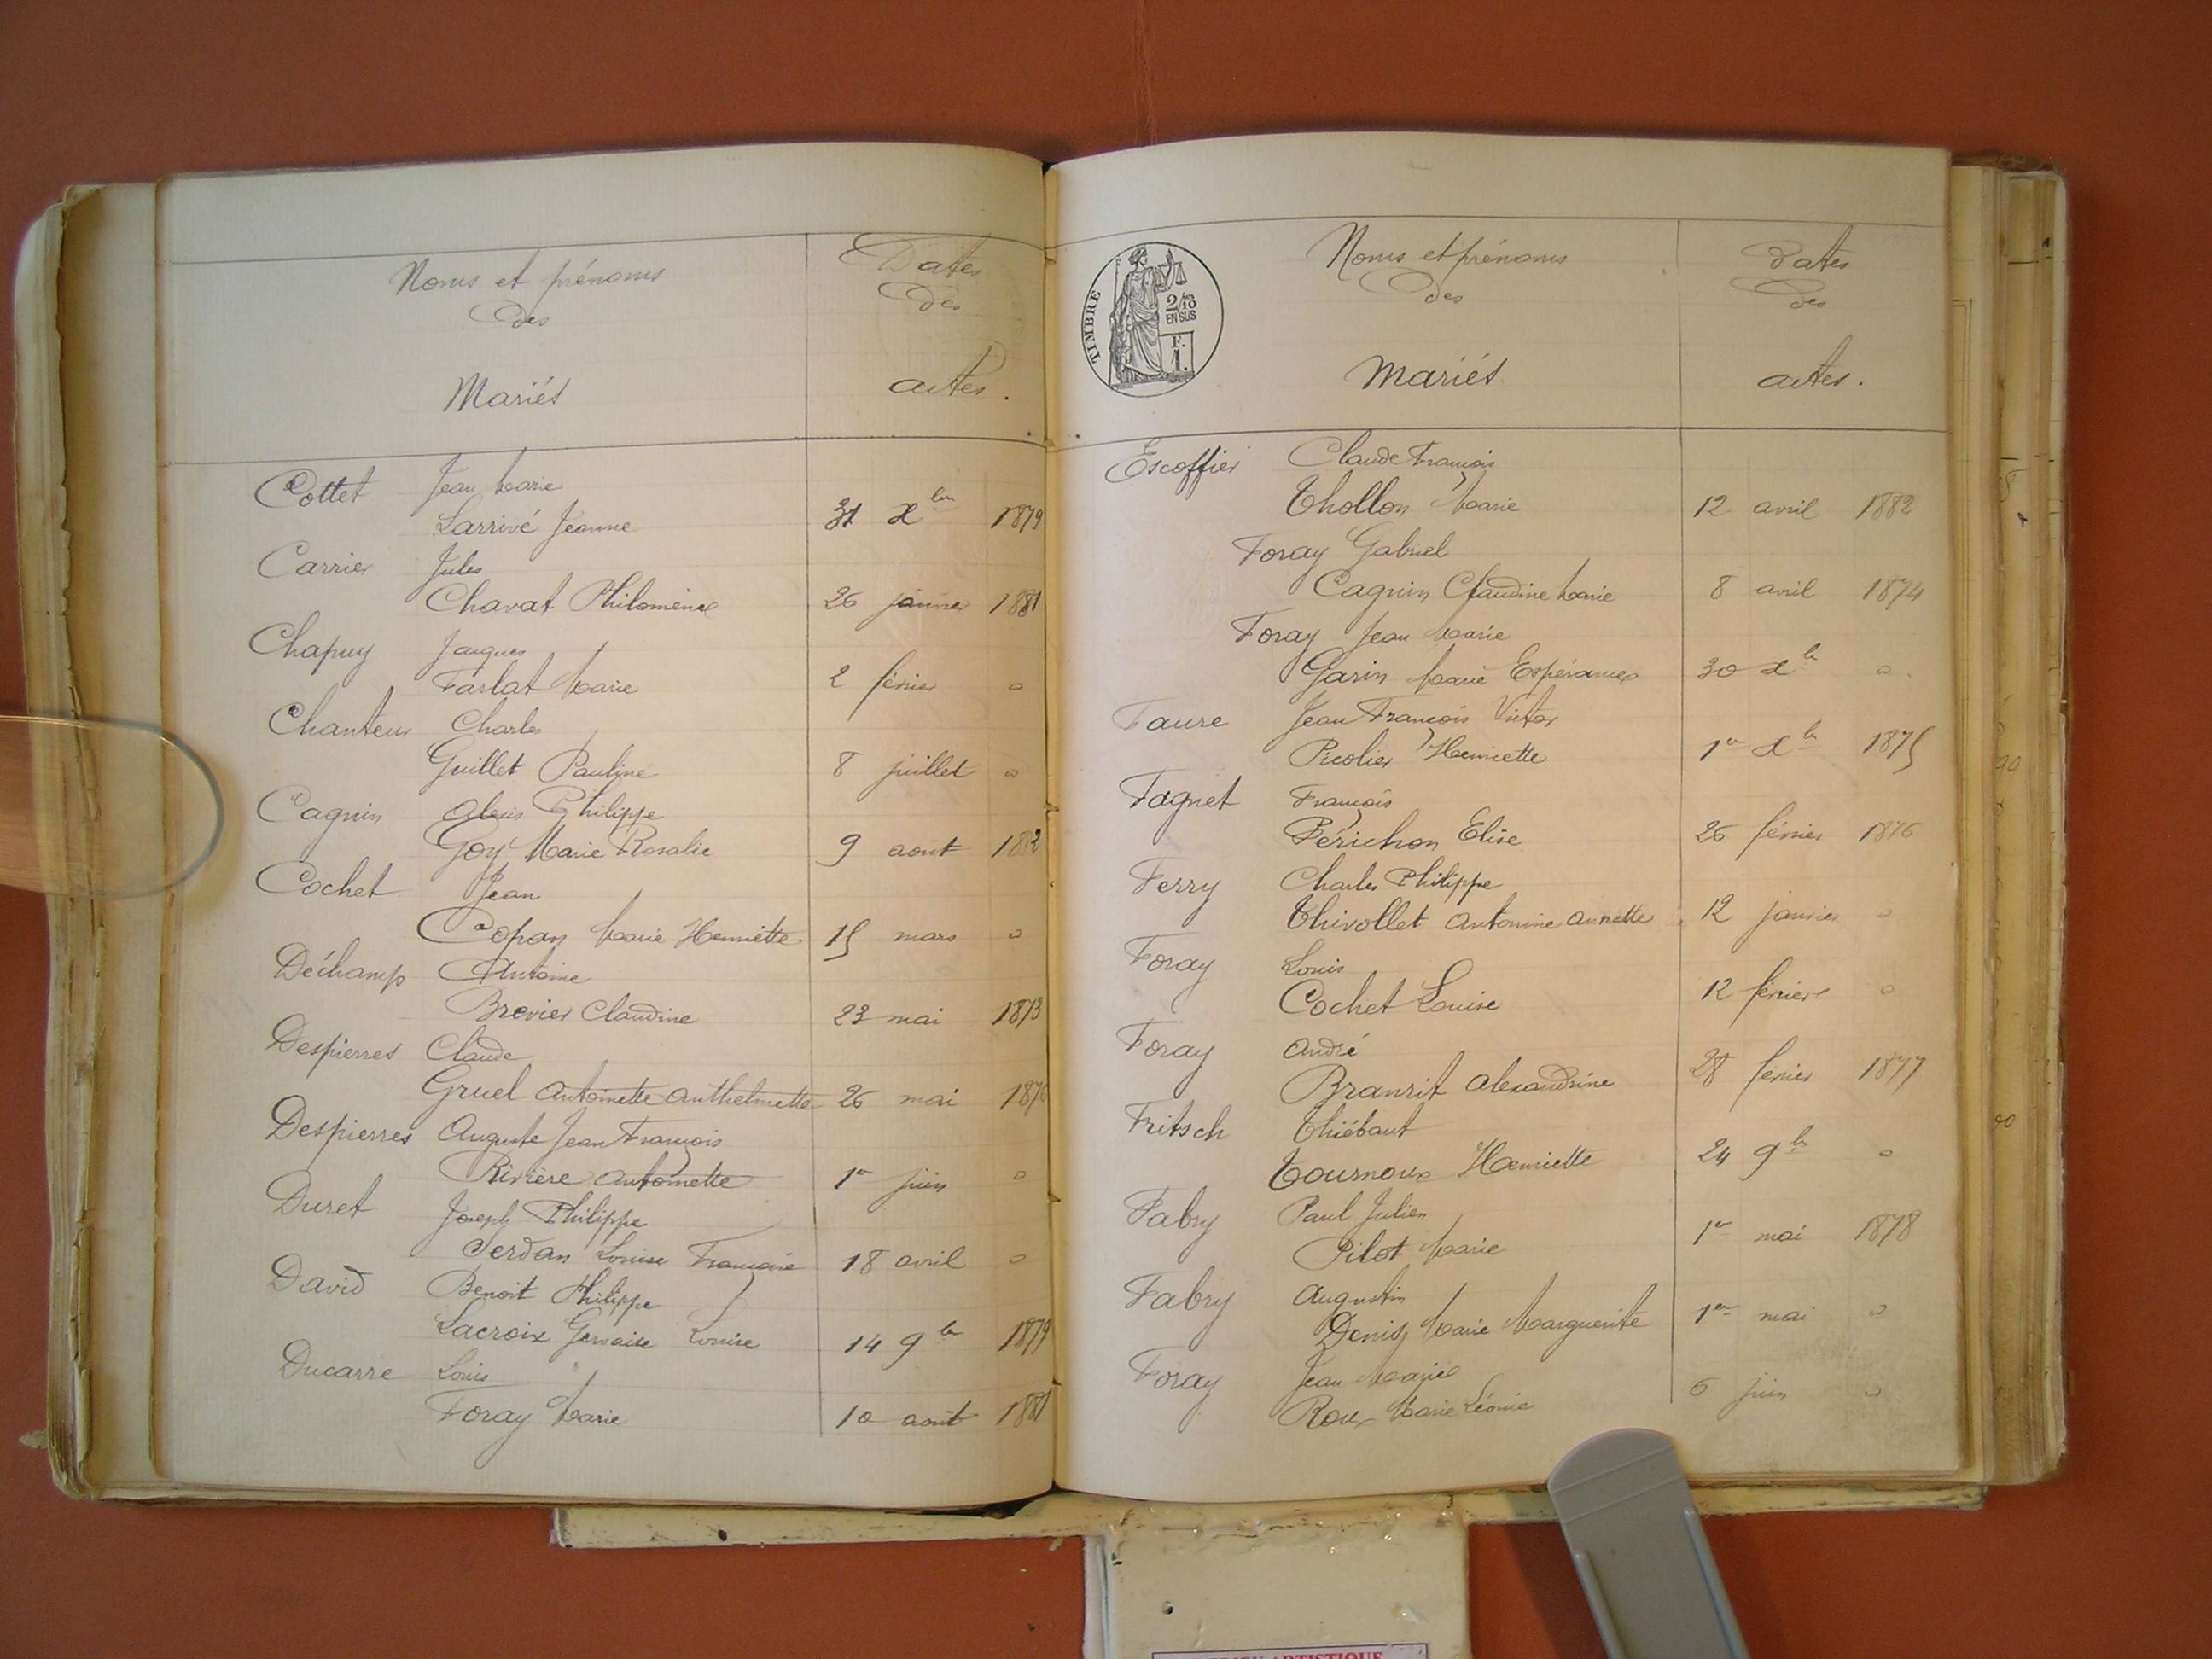 Noms et prénoms
des
Mariés
Dates
des
actes.
Cottet Jean Marie
Larrivé Jeanne 31 Xbre 1879
Carrier Jules
Chavat Philomène 26 janvier 1881
Chapuy Jacques
Farlat Marie 2 février "
Chanteur Charles
Guillet Pauline 8 juillet "
Cagnin Alexis Philippe
Goy Marie Rosalie 9 aout 1882
Cochet Jean
Copan Marie Henriette 15 mars "
Déchamp Antoine
Brevier Claudine 23 mai 1873
Despierres Claude
Gruel Antoinette Anthelmette 26 mai 1876
Despierres Auguste Jean François
Rivière Antoinette 1er juin "
Duret Joseph Philippe
Jerdan Louise Françoise 18 avril "
David Benoit Philippe
Lacroix Gervaise Louise 14 9bre 1879
Ducarre Louis
Foray Marie 10 août 1881
TIMBRE
2/10
EN SUS
F.
1.
Noms et prénoms
des
Mariés
Dates
des
actes.
Escoffier Claude François
Thollon Marie 12 avril 1882
Foray Gabriel
Cagnin Claudine Marie 8 avril 1874
Foray Jean Marie
Garin Marie Espérance 30 Xbre "
Faure Jean François Victor
Picolier Henriette 1er Xbre 1875
Fagnet François
Périchon Elise 26 février 1876
Ferry Charles Philippe
Thivollet Antonine Annette 12 janvier "
Foray Louis
Cochet Louise 12 février "
Foray André
Branrit Alexandrine 28 février 1877
Fritsch Thiébaut
Tournoux Henriette 24 9bre "
Fabry Paul Julien
Pilot Marie 1er mai 1878
Fabry Augustin
Denis Marie Marguerite 1er mai "
Foray Jean Marie
Roux Marie Léonie 6 juin "